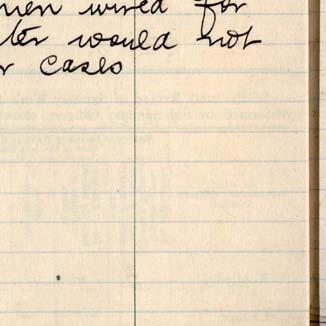 men wired for
ter would not
r cases